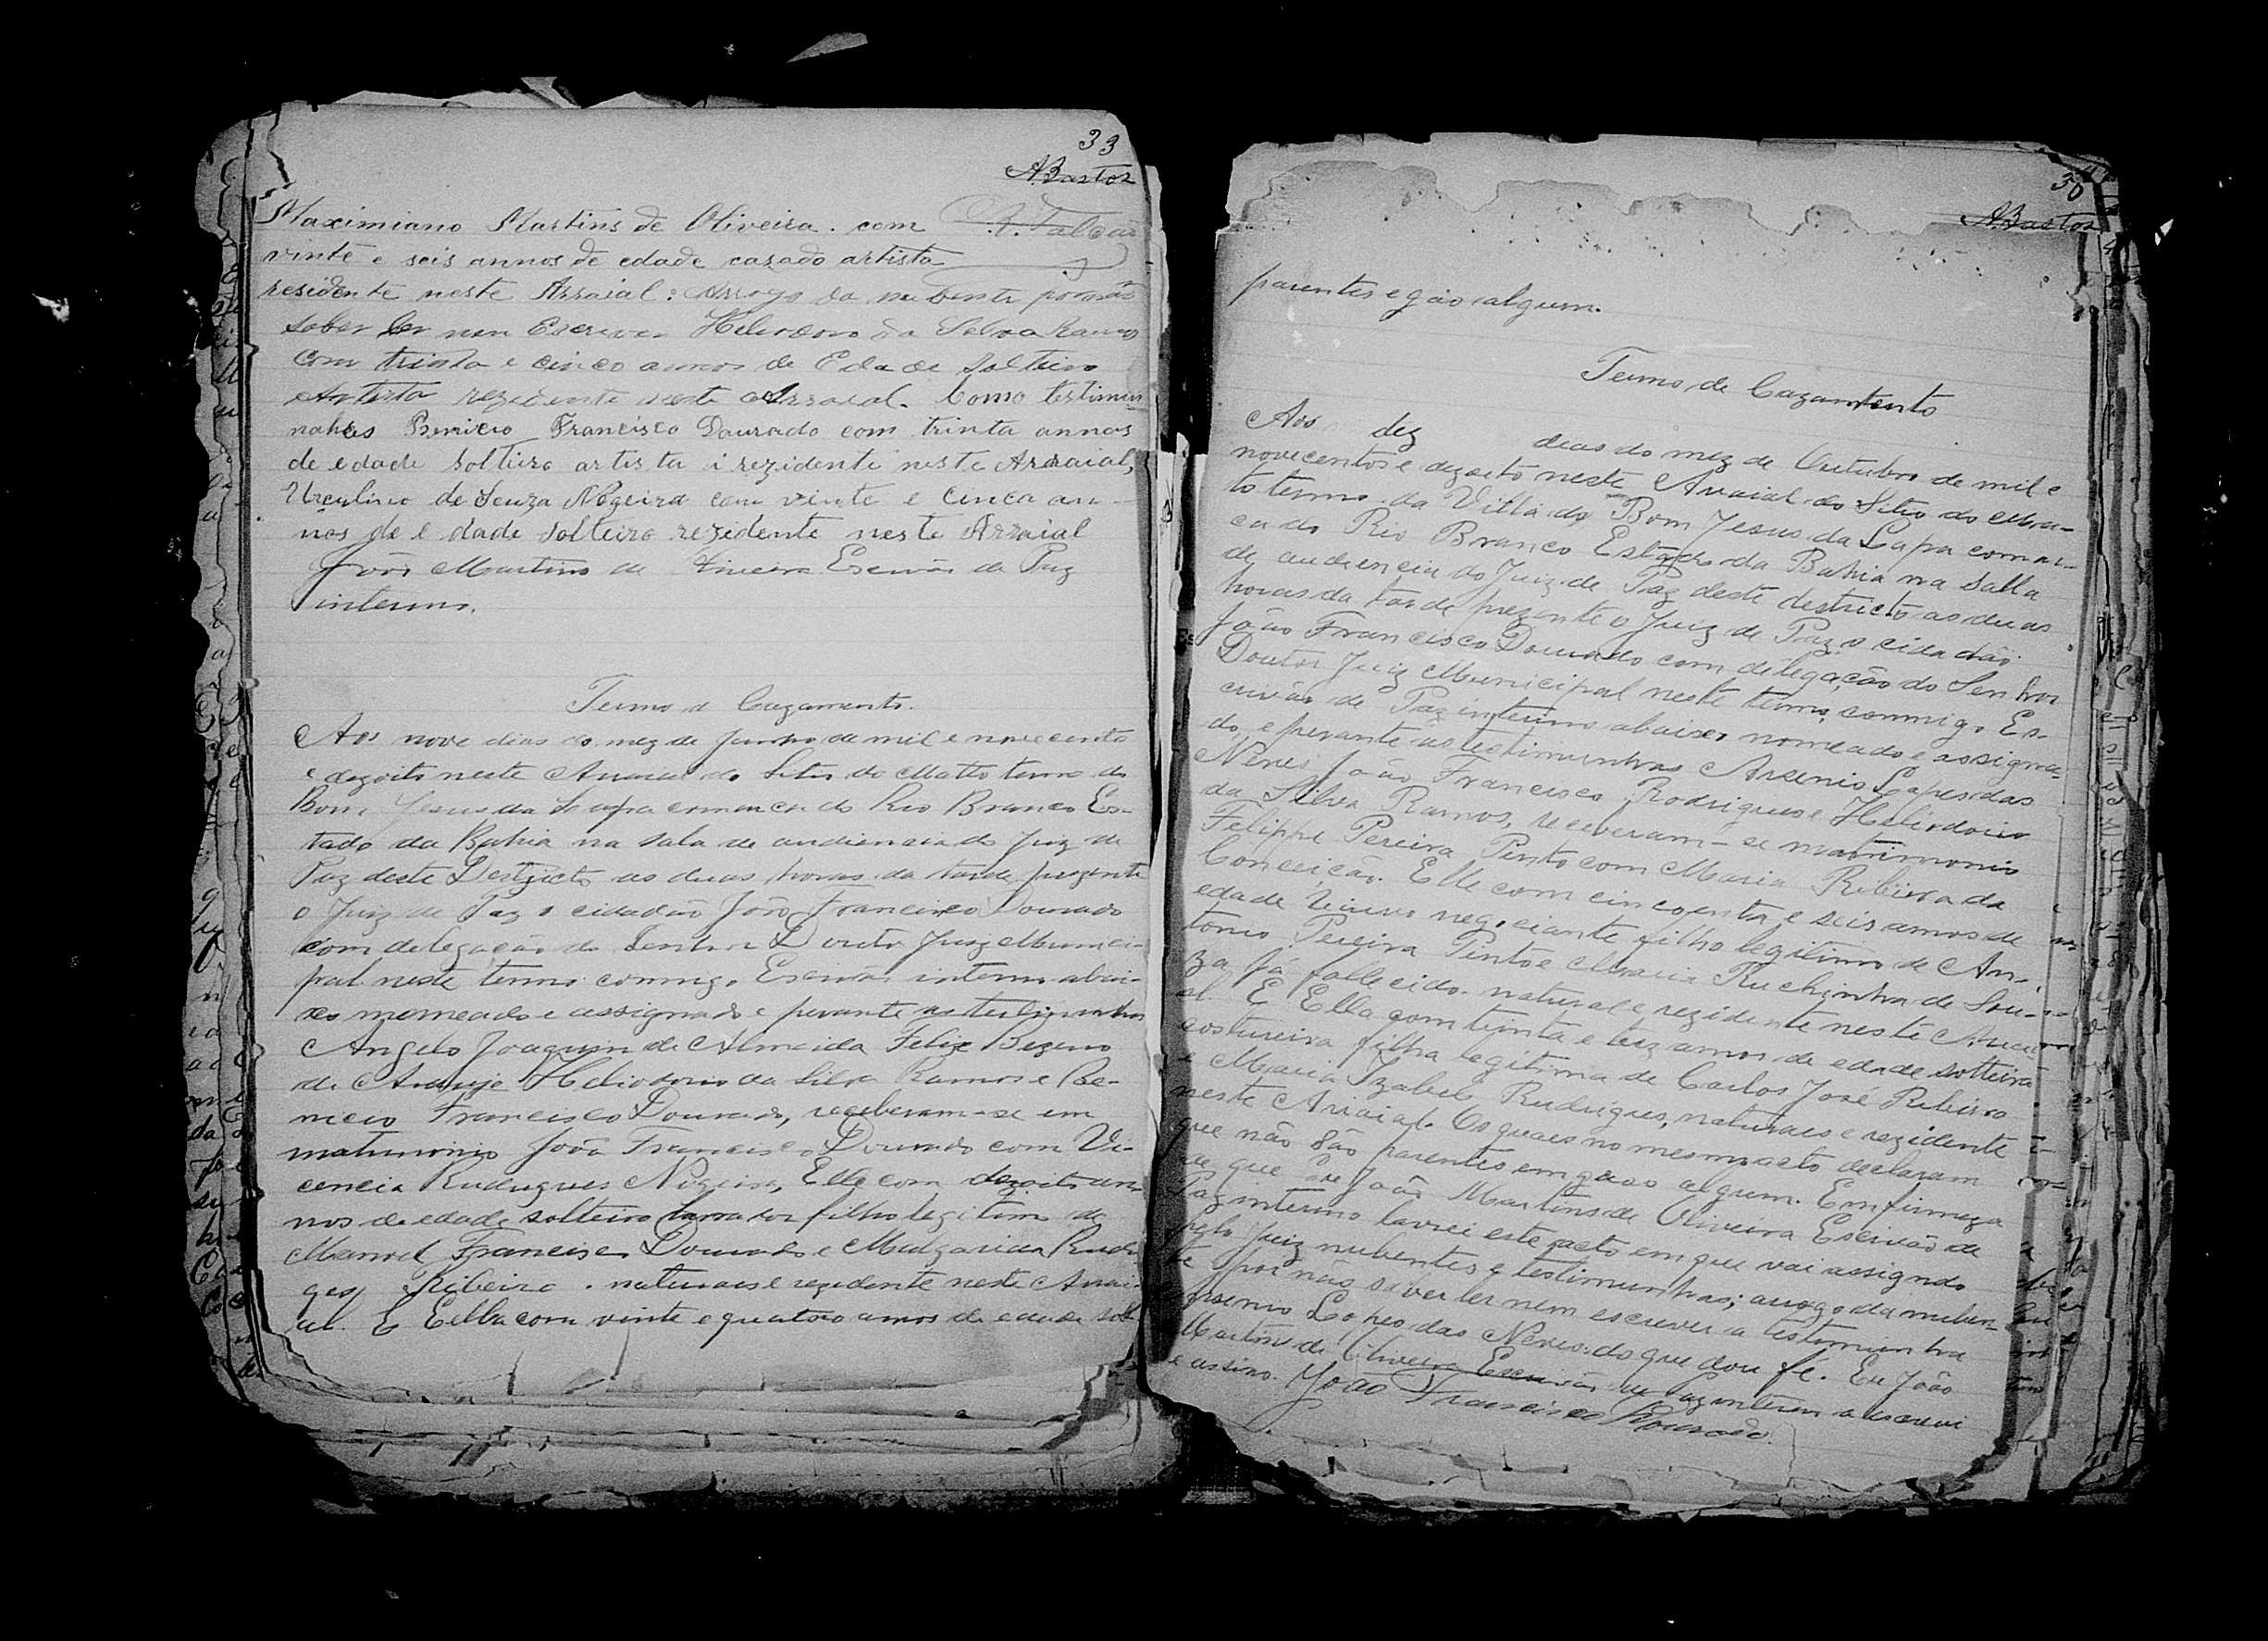 33
ABastos
Maximiano Martins de Oliveira. com
vinte e seis annos de edade cazado artista
residente neste Arraial: Arrogo da nubente por não
saber ler nem Escrever Heliodoro da Selva Ramos
com trinta e cinco annos de Edade solteiro
Artista rezidente neste Arraial. Como testimu-
nahas Benicio Francisco Dourado com trinta annos
de edade solteiro artista i rezidente neste Arraial,
Urculino de Souza Nogeira com vinte e cinca an-
nos de e dade solteiro rezedente neste Arraial
João Martins de Oliveira Escrivão de Paz
interino.
Termo de Cazamento.
Aos nove dias do mez de Junho de mil e novecento
e dezoito neste Arraial do Sitio do Matto termo do
Bom Jesus da Lapa comarca do Rio Branco Es-
tado da Bahia na sala de audiencia do Juiz de
Paz deste Destricto as duas horas da tarde prezente
o Juiz de Paz o cidadão João Francisco Dourado
com delegação do Senhor Doutor Juiz Munici-
pal neste termo commigo Escrivão interino abai-
xo nomeado e assignado e perante as testimunhas
Angelo Joaquim de Almeida Felix Bezerra
de Araujo Heliodorio da Silva Ramos e Be-
nicio Francisco Dourado, receberam-se em
matrimonio João Francisco Dourado com Vi-
cencia Rudrigues Nogeira, Elle com dezoito an-
nos de edade solteiro lavrador filho legitimo de
Manoel Francisco Dourado e Margarida Rudri
ges Ribeiro. naturaes e rezedente neste Arrai-
al. E Ella com vinte e quatro annos de edade solt
ABastos
parentes e gráo algum.
Termo de Cazamento
Aos dez dias do mez de Outubro de mil e
novecentos e dezoito neste Arraial do Sitio do Mat-
to termo da Villa do Bom Jesus da Lapa comar-
ca do Rio Branco Estado da Bahia na salla
de audiencia do Juiz de Paz deste destricto as duas
horas da tarde prezente o Juiz de Paz o cidadão
João Francisco Dourado com delegação do Senhor
Doutor Juiz Municipal neste termo, commigo Es-
crivão de Paz interino abaixo nomeado e assigna-
do, e perante as testimunhas Arsenio Lopes das
Neves João Francisco Rodrigues e Heliodorio
da Silva Ramos, receveram-se matrimonio
Felippe Pereira Pinto com Maria Ribeira da
Conceição. Elle com cincoenta e seis annos de
edade viuvo negociante filho legitimo de An-
tonio Pereira Pinto e Maria Ruchinha de Sou-
za já fallecido. natural e rezidente neste Arrai-
al. E Ella com trinta e trez annos de edade solteira
costureira filha legitima de Carlos José Ribeiro
e Maria Izabel Rudrigues, naturaes e rezidente
neste Arraial. Os quaes no mesmo acto declaram
que não são parentes em gráo algum. Em firmeza
de que Eu João Martins de Oliveira Escrivão de
Paz interino lavrei este acto em que vai assignado
pelo Juiz nubentes e testimunhas; arrogo da nuben-
te por não saber ler nem escrever a testimunha
Arsenio Lopes das Neves. do que dou fé. Eu João
Martins de Oliveira Escrivão de Paz interino a escrevi
e assino. João Francisco Dourado.